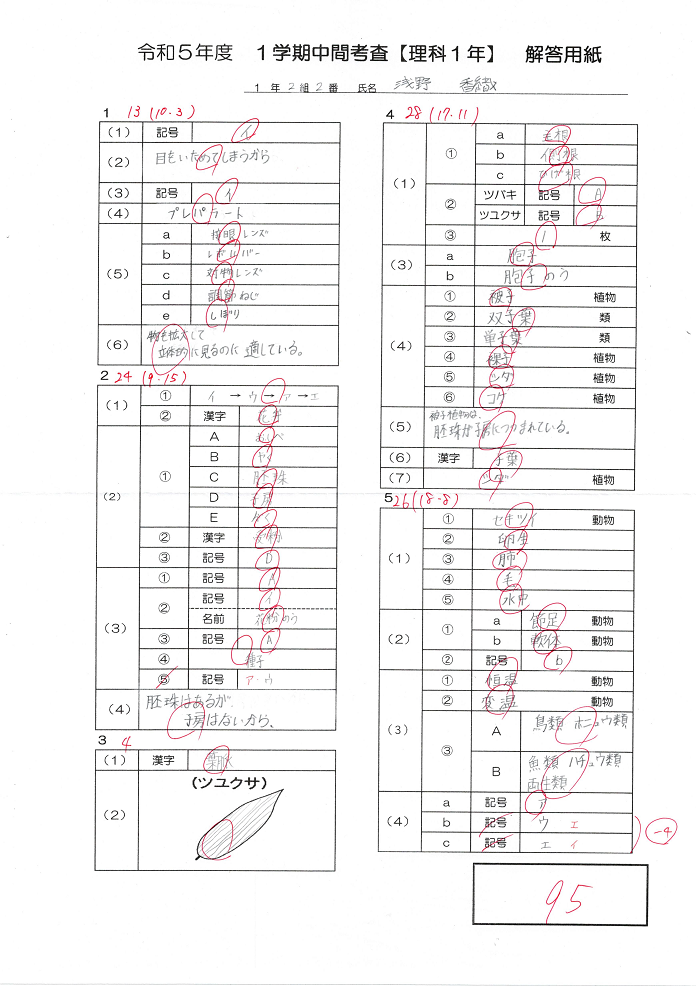 令和5年度 1学期中間考査【理科1年】 解答用紙
1 年 2 組 2 番 氏名 浅野 香織
1 13 (10・3)
(1) 記号 イ
(2) 目をいためてしまうから
(3) 記号 イ
(4) プレパラート
(5) a 接眼レンズ
b レボルバー
c 対物レンズ
d 調節ねじ
e しぼり
(6) 物を拡大して
立体的に見るのに適している。
2 24 (9・15)
(1) ① イ → ウ → ア → エ
② 漢字
(2) ① A めしべ
B やく
C 胚珠
D 子房
E がく
② 漢字
③ 記号 D
(3) ① 記号 A
② 記号 イ
名前 花粉のう
③ 記号 A
④ 種子
⑤ 記号 ア ウ
(4) 胚珠はあるが、
子房はないから、
3 4
(1) 漢字 葉脈
(2) (ツユクサ)
4 28 (17・11)
(1) ① a 主根
b 側根
c ひげ根
② ツバキ 記号 A
ツユクサ 記号 B
③ 1 枚
(3) a 胞子
b 胞子のう
(4) ① 被子 植物
② 双子葉 類
③ 単子葉 類
④ 裸子 植物
⑤ シダ 植物
⑥ コケ 植物
(5) 被子植物は、
胚珠が子房につつまれている。
(6) 漢字 子葉
(7) シダ 植物
5 26 (18・8)
(1) ① セキツイ 動物
② 卵生
③ 肺
④ 毛
⑤ 水中
(2) ① a 節足 動物
b 軟体 動物
② 記号 b
(3) ① 恒温 動物
② 変温 動物
③ A 鳥類 ホニュウ類
B 魚類 ハチュウ類
両生類
(4) a 記号 ア
b 記号 ウ エ
c 記号 エ イ
-4
95